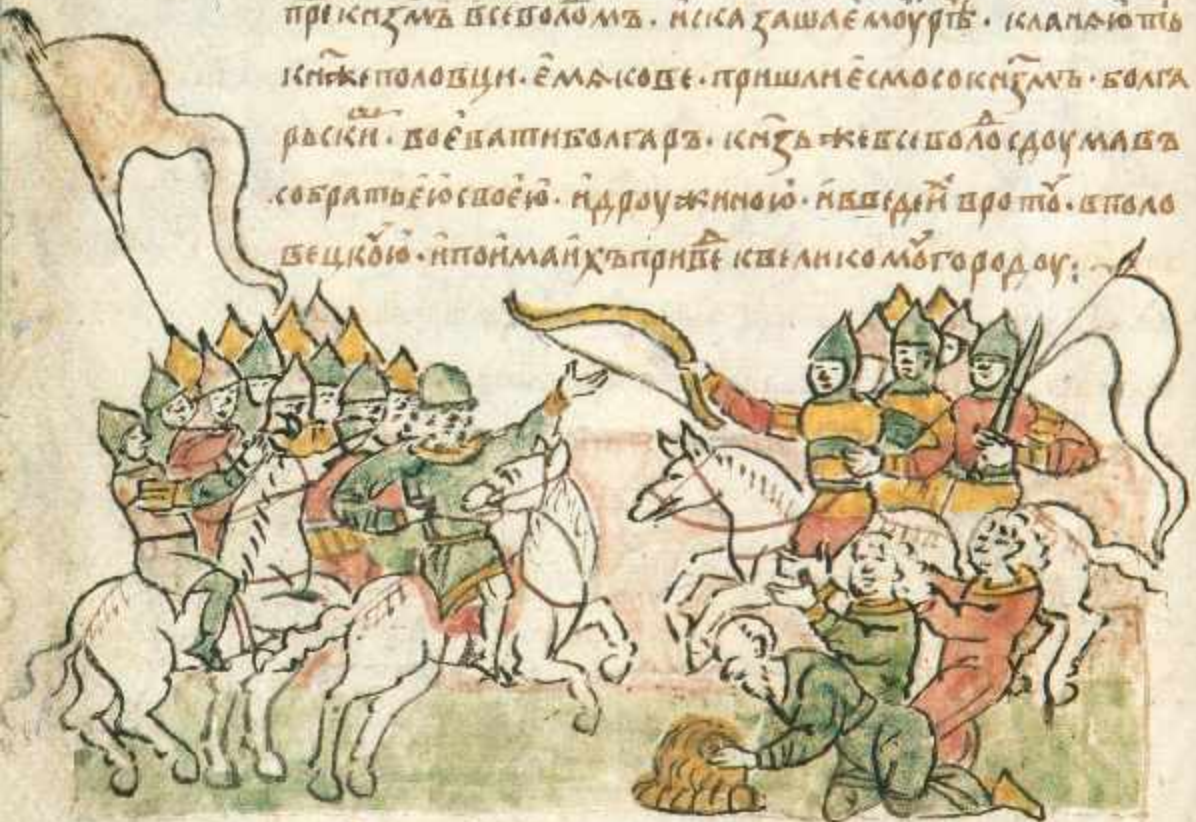 пре кнѧзмъ всеволодомъ · и сказаша ємоу рѣ · кланѧютьⷭ҇
кнѧже половци · ємѧкове · пришли єсмо со кнѧзмъ · болга
рьскиⷨ · воєвати болгаръ · кнѧзь же всеволоⷣ сдоумавъ
со братьєю своєю · и дроужиною · и введе и в ротоу · в поло
вецкоую · и поима ихъ приⷣве к великомоу городоу :·